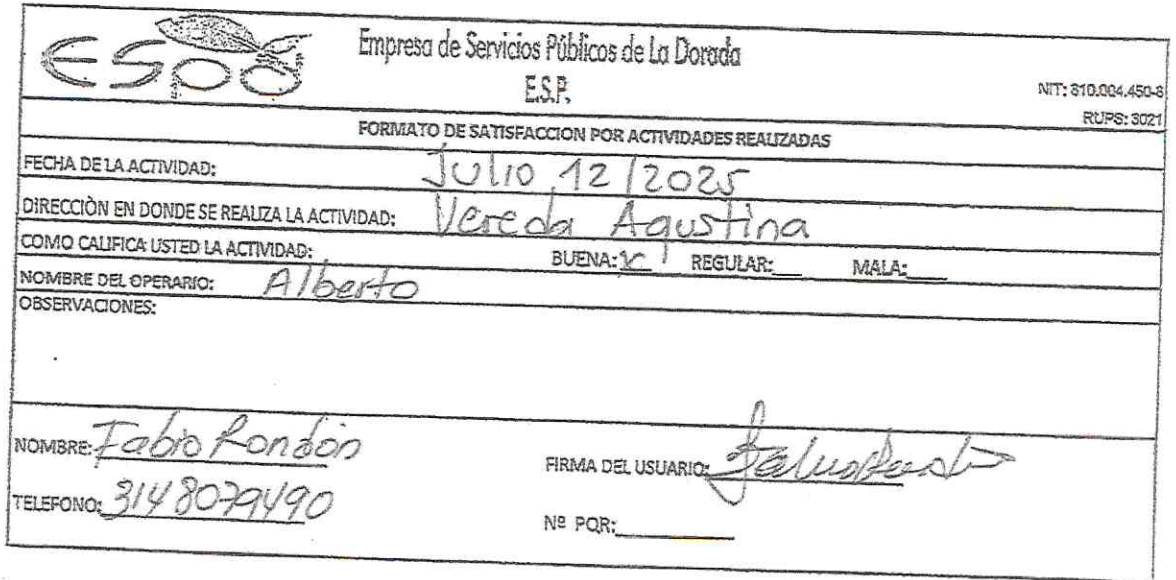 espd
Empresa de Servicios Públicos de La Dorada
E.S.P.
NIT: 810.004.450-8
RUPS: 3021
FORMATO DE SATISFACCION POR ACTIVIDADES REALIZADAS
FECHA DE LA ACTIVIDAD: Julio 12/2025
DIRECCIÒN EN DONDE SE REALIZA LA ACTIVIDAD: Vereda Agustina
COMO CALIFICA USTED LA ACTIVIDAD: BUENA: X REGULAR:___ MALA:___
NOMBRE DEL OPERARIO: Alberto
OBSERVACIONES:
NOMBRE: Fabio Rondón
FIRMA DEL USUARIO:
TELEFONO: 3148079490
Nº PQR:___